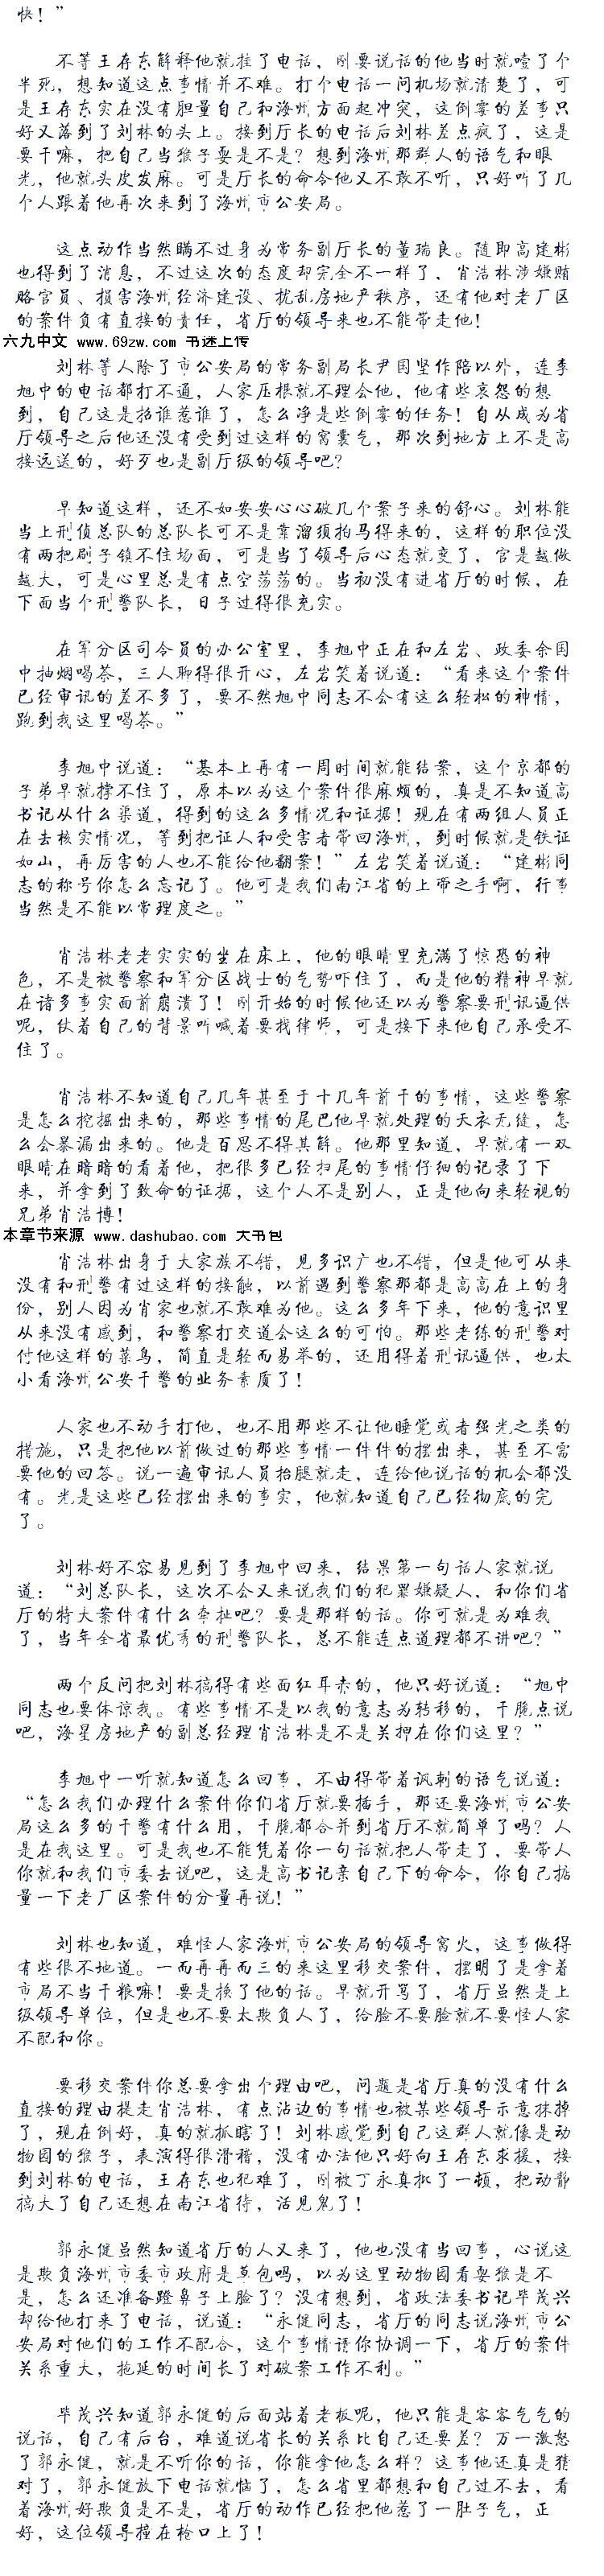 快！”
不等王存东解释他就挂了电话，刚要说话的他当时就噎了个
半死，想知道这点事情并不难。打个电话一问机场就清楚了，可
是王存东实在没有胆量自己和海州方面起冲突，这倒霉的差事只
好又落到了刘林的头上。接到厅长的电话后刘林差点疯了，这是
要干嘛，把自己当猴子耍是不是？想到海州那群人的语气和眼
光，他就头皮发麻。可是厅长的命令他又不敢不听，只好听了几
个人跟着他再次来到了海州市公安局。
这点动作当然瞒不过身为常务副厅长的董瑞良。随即高建彬
也得到了消息，不过这次的态度却完全不一样了，肖浩林涉嫌贿
赂官员、损害海州经济建设、扰乱房地产秩序，还有他对老厂区
的案件负有直接的责任，省厅的领导来也不能带走他！
六九中文 www.69zw.com 书迷上传
刘林等人除了市公安局的常务副局长尹国坚作陪以外，连李
旭中的电话都打不通，人家压根就不理会他，他有些哀怨的想
到，自己这是招谁惹谁了，怎么净是些倒霉的任务！自从成为省
厅领导之后他还没有受到过这样的窝囊气，那次到地方上不是高
接远送的，好歹也是副厅级的领导吧？
早知道这样，还不如安安心心破几个案子来的舒心。刘林能
当上刑侦总队的总队长可不是靠溜须拍马得来的，这样的职位没
有两把刷子镇不住场面，可是当了领导后心态就变了，官是越做
越大，可是心里总是有点空荡荡的。当初没有进省厅的时候，在
下面当个刑警队长，日子过得很充实。
在军分区司令员的办公室里，李旭中正在和左岩、政委余国
中抽烟喝茶，三人聊得很开心，左岩笑着说道：“看来这个案件
已经审讯的差不多了，要不然旭中同志不会有这么轻松的神情，
跑到我这里喝茶。”
李旭中说道：“基本上再有一周时间就能结案，这个京都的
子弟早就撑不住了，原本以为这个案件很麻烦的，真是不知道高
书记从什么渠道，得到的这么多情况和证据！现在有两组人员正
在去核实情况，等到把证人和受害者带回海州，到时候就是铁证
如山，再厉害的人也不能给他翻案！”左岩笑着说道：“建彬同
志的称号你怎么忘记了。他可是我们南江省的上帝之手啊，行事
当然是不能以常理度之。”
肖浩林老老实实的坐在床上，他的眼睛里充满了惊恐的神
色，不是被警察和军分区战士的气势吓住了，而是他的精神早就
在诸多事实面前崩溃了！刚开始的时候他还以为警察要刑讯逼供
呢，仗着自己的背景听喊着要找律师，可是接下来他自己承受不
住了。
肖浩林不知道自己几年甚至于十几年前干的事情，这些警察
是怎么挖掘出来的，那些事情的尾巴他早就处理的天衣无缝，怎
么会暴漏出来的。他是百思不得其解。他那里知道，早就有一双
眼睛在暗暗的看着他，把很多已经扫尾的事情仔细的记录了下
来，并拿到了致命的证据，这个人不是别人，正是他向来轻视的
兄弟肖浩博！
本章节来源 www.dashubao.com 大书包
肖浩林出身于大家族不错，见多识广也不错，但是他可从来
没有和刑警有过这样的接触，以前遇到警察那都是高高在上的身
份，别人因为肖家也就不敢难为他。这么多年下来，他的意识里
从来没有感到，和警察打交道会这么的可怕。那些老练的刑警对
付他这样的菜鸟，简直是轻而易举的，还用得着刑讯逼供，也太
小看海州公安干警的业务素质了！
人家也不动手打他，也不用那些不让他睡觉或者强光之类的
措施，只是把他以前做过的那些事情一件件的摆出来，甚至不需
要他的回答。说一遍审讯人员抬腿就走，连给他说话的机会都没
有。光是这些已经摆出来的事实，他就知道自己已经彻底的完
了。
刘林好不容易见到了李旭中回来，结果第一句话人家就说
道：“刘总队长，这次不会又来说我们的犯罪嫌疑人，和你们省
厅的特大案件有什么牵扯吧？要是那样的话。你可就是为难我
了，当年全省最优秀的刑警队长，总不能连点道理都不讲吧？”
两个反问把刘林搞得有些面红耳赤的，他只好说道：“旭中
同志也要体谅我。有些事情不是以我的意志为转移的，干脆点说
吧，海星房地产的副总经理肖浩林是不是关押在你们这里？”
李旭中一听就知道怎么回事，不由得带着讽刺的语气说道：
“怎么我们办理什么案件你们省厅就要插手，那还要海州市公安
局这么多的干警有什么用，干脆都合并到省厅不就简单了吗？人
是在我这里。可是我也不能凭着你一句话就把人带走了，要带人
你就和我们市委去说吧，这是高书记亲自己下的命令，你自己掂
量一下老厂区案件的分量再说！”
刘林也知道，难怪人家海州市公安局的领导窝火，这事做得
有些很不地道。一而再再而三的来这里移交案件，摆明了是拿着
市局不当干粮嘛！要是换了他的话。早就开骂了，省厅虽然是上
级领导单位，但是也不要太欺负人了，给脸不要脸就不要怪人家
不配和你。
要移交案件你总要拿出个理由吧，问题是省厅真的没有什么
直接的理由提走肖浩林，有点沾边的事情也被某些领导示意抹掉
了，现在倒好，真的就抓瞎了！刘林感觉到自己这群人就像是动
物园的猴子，表演得很滑稽，没有办法他只好向王存东求援，接
到刘林的电话，王存东也犯难了，刚被丁永真批了一顿，把动静
搞大了自己还想在南江省待，活见鬼了！
郭永健虽然知道省厅的人又来了，他也没有当回事，心说这
是欺负海州市委市政府是草包吗，以为这里动物园看耍猴是不
是，怎么还准备蹬鼻子上脸了？没有想到，省政法委书记毕茂兴
却给他打来了电话，说道：“永健同志，省厅的同志说海州市公
安局对他们的工作不配合，这个事情请你协调一下，省厅的案件
关系重大，拖延的时间长了对破案工作不利。”
毕茂兴知道郭永健的后面站着老板呢，他只能是客客气气的
说话，自己有后台，难道说省长的关系比自己还要差？万一激怒
了郭永健，就是不听你的话，你能拿他怎么样？这事他还真是猜
对了，郭永健放下电话就恼了，怎么省里都想和自己过不去，看
着海州好欺负是不是，省厅的动作已经把他惹了一肚子气，正
好，这位领导撞在枪口上了！